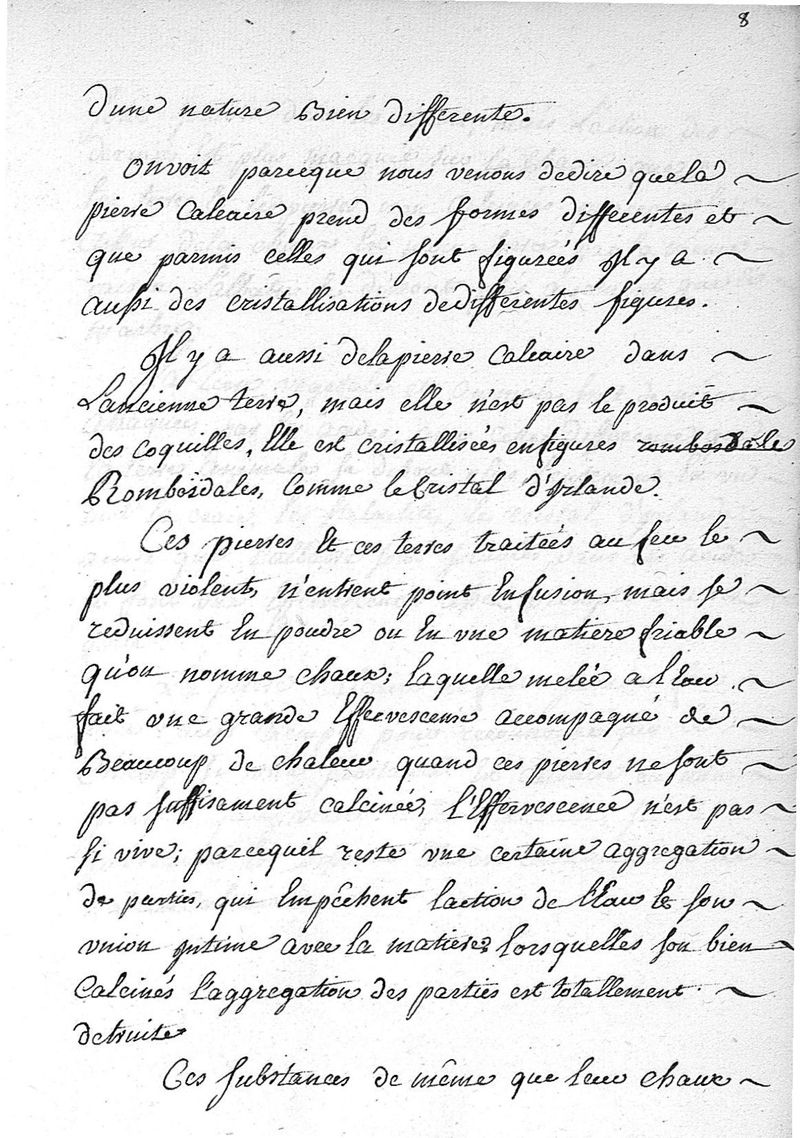 8
d'une nature Bien differente.
On voit parceque nous venons dedire quela
pierre Calcaire prend des formes differentes et
que parmis celles qui sont figurées Il y a
aussi des cristallisations dedifferentes figures.
Il y a aussi delapierre Calcaire dans
L'ancienne terre, mais elle n'est pas le produit
des coquilles, Elle est cristallisées enfigures romboidale
Romboidales, Comme le Cristal d'Irlande.
Ces pierres Et ces terres traitées au feu le
plus violent, n'entrent point En fusion, mais se
reduissent En poudre ou En vne matiere friable
qu'on nomme chaux; laquelle melée a l'Eau
fait vne grande Effervescense accompagné de
Beaucoup de chaleur quand ces pierres ne sont
pas suffisament calcinée, l'Effervescence n'est pas
si vive; parcequil reste vne certaine aggregation
de parties, qui Empêchent laction de l'Eau & son
vnion Intime avec la matiere; lorsquelles son bien
Calcinés l'aggregation des parties est totallement
detruite
Ces substances de même que leur chaux